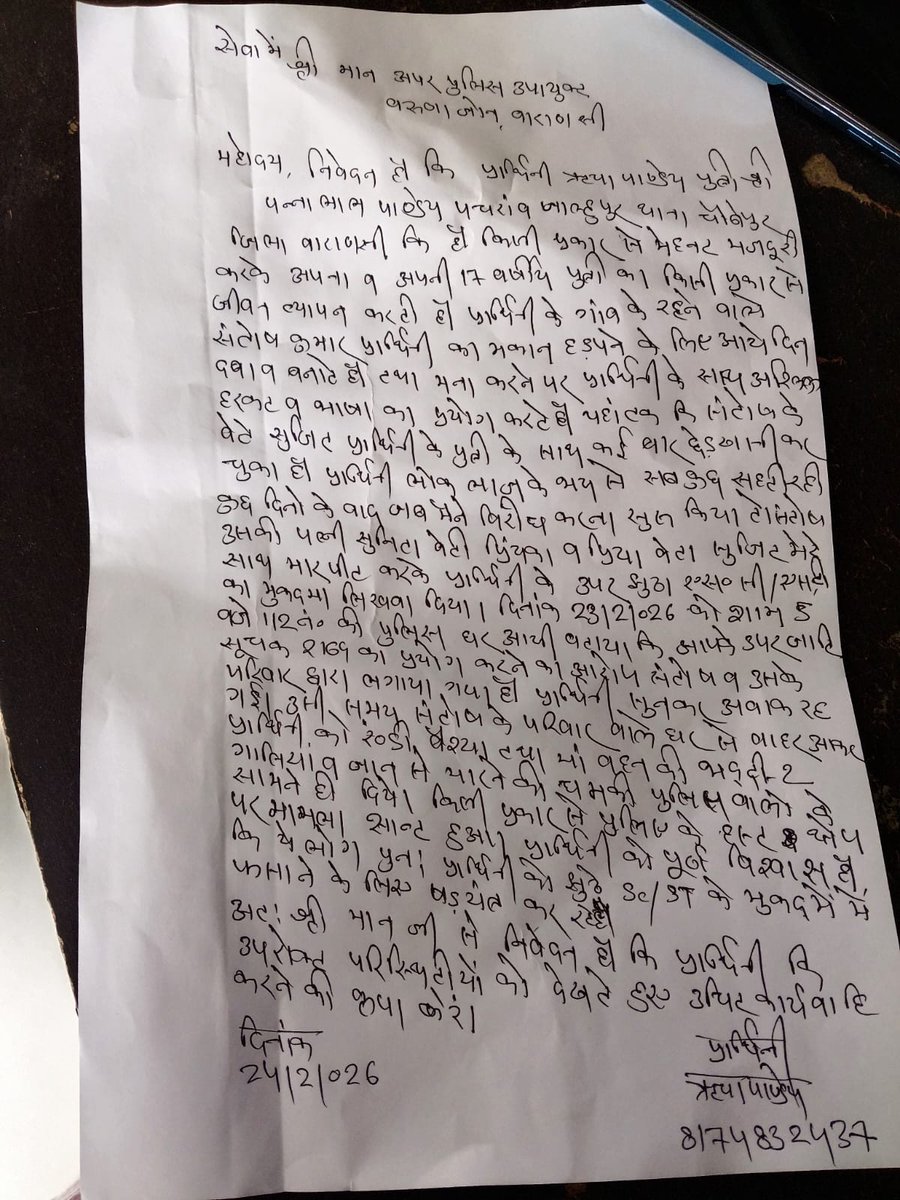 सेवा में
श्री मान अपर पुलिस उपायुक्त
वरुणा जोन, वाराणसी
महोदय, निवेदन है कि प्रार्थिनी पाण्डेय पुत्री श्री
पन्ना लाल पाण्डेय पचरांव जाल्हुपुर थाना चौबेपुर
जिला वाराणसी कि है किसी प्रकार से मेहनट मजदूरी
करके अपना व अपनी 17 वर्षीय पुत्री का किसी प्रकार से
जीवन व्यापन करटी है प्रार्थिनी के गांव के रहने वाले
संतोष कुमार प्रार्थिनी का मकान हड़पने के लिए आये दिन
दबाव बनाटे है तथा मना करने पर प्रार्थिनी के साथ
हरकट व भाषा का प्रयोग करटे है यहां तक कि संटोष के
बेटे सुजिट प्रार्थिनी के पुत्री के साथ कई बार छेड़खानी कर
चुका है प्रार्थिनी लोक लाज के भय से सब कुछ सहटी रही
कुछ दिनो के बाद जब मैने विरोध करना सुरु किया टो संटोष
उसकी पत्नी सुनिटा बेटी प्रियंका व प्रिया बेटा सुजिट मेरे
साथ मारपीट करके प्रार्थिनी के उपर झुठा एस०सी/एसटी
का मुकदमा लिखवा दिया। दिनांक 23/2/026 को शाम 5
बजे 112 नं० की पुलिस घर आयी बताया कि आपके उपर जाति
सूचक शब्द का प्रयोग करने का आरोप संतोष व उसके
परिवार द्वारा लगाया गया है प्रार्थिनी सुनकर अवाक रह
गई। उसी समय संतोष के परिवार वाले घर से बाहर आकर
प्रार्थिनी को रंडी, वैश्या तथा मां बहन की भद्दी-2
गालियां व जान से मारने की धमकी पुलिस वालो के
सामने ही दिये। किसी प्रकार से पुलिस के हस्ट क्षेप
पर मामला सान्ट हुआ। प्रार्थिनी को पूर्ण विश्वास है
कि ये लोग पुनः प्रार्थिनी को झुठे SC/ST के मुकदमें में
फसाने के लिए षड़यंत्र कर रहे
अटः श्री मान जी से निवेदन है कि प्रार्थिनी कि
उपरोक्ट परिस्थिटीयों को देखते हुए उचिट कार्यवाहि
करने की कृपा करें।
दिनांक
24/2/026
प्रार्थिनी
पाण्डेय
8174832437